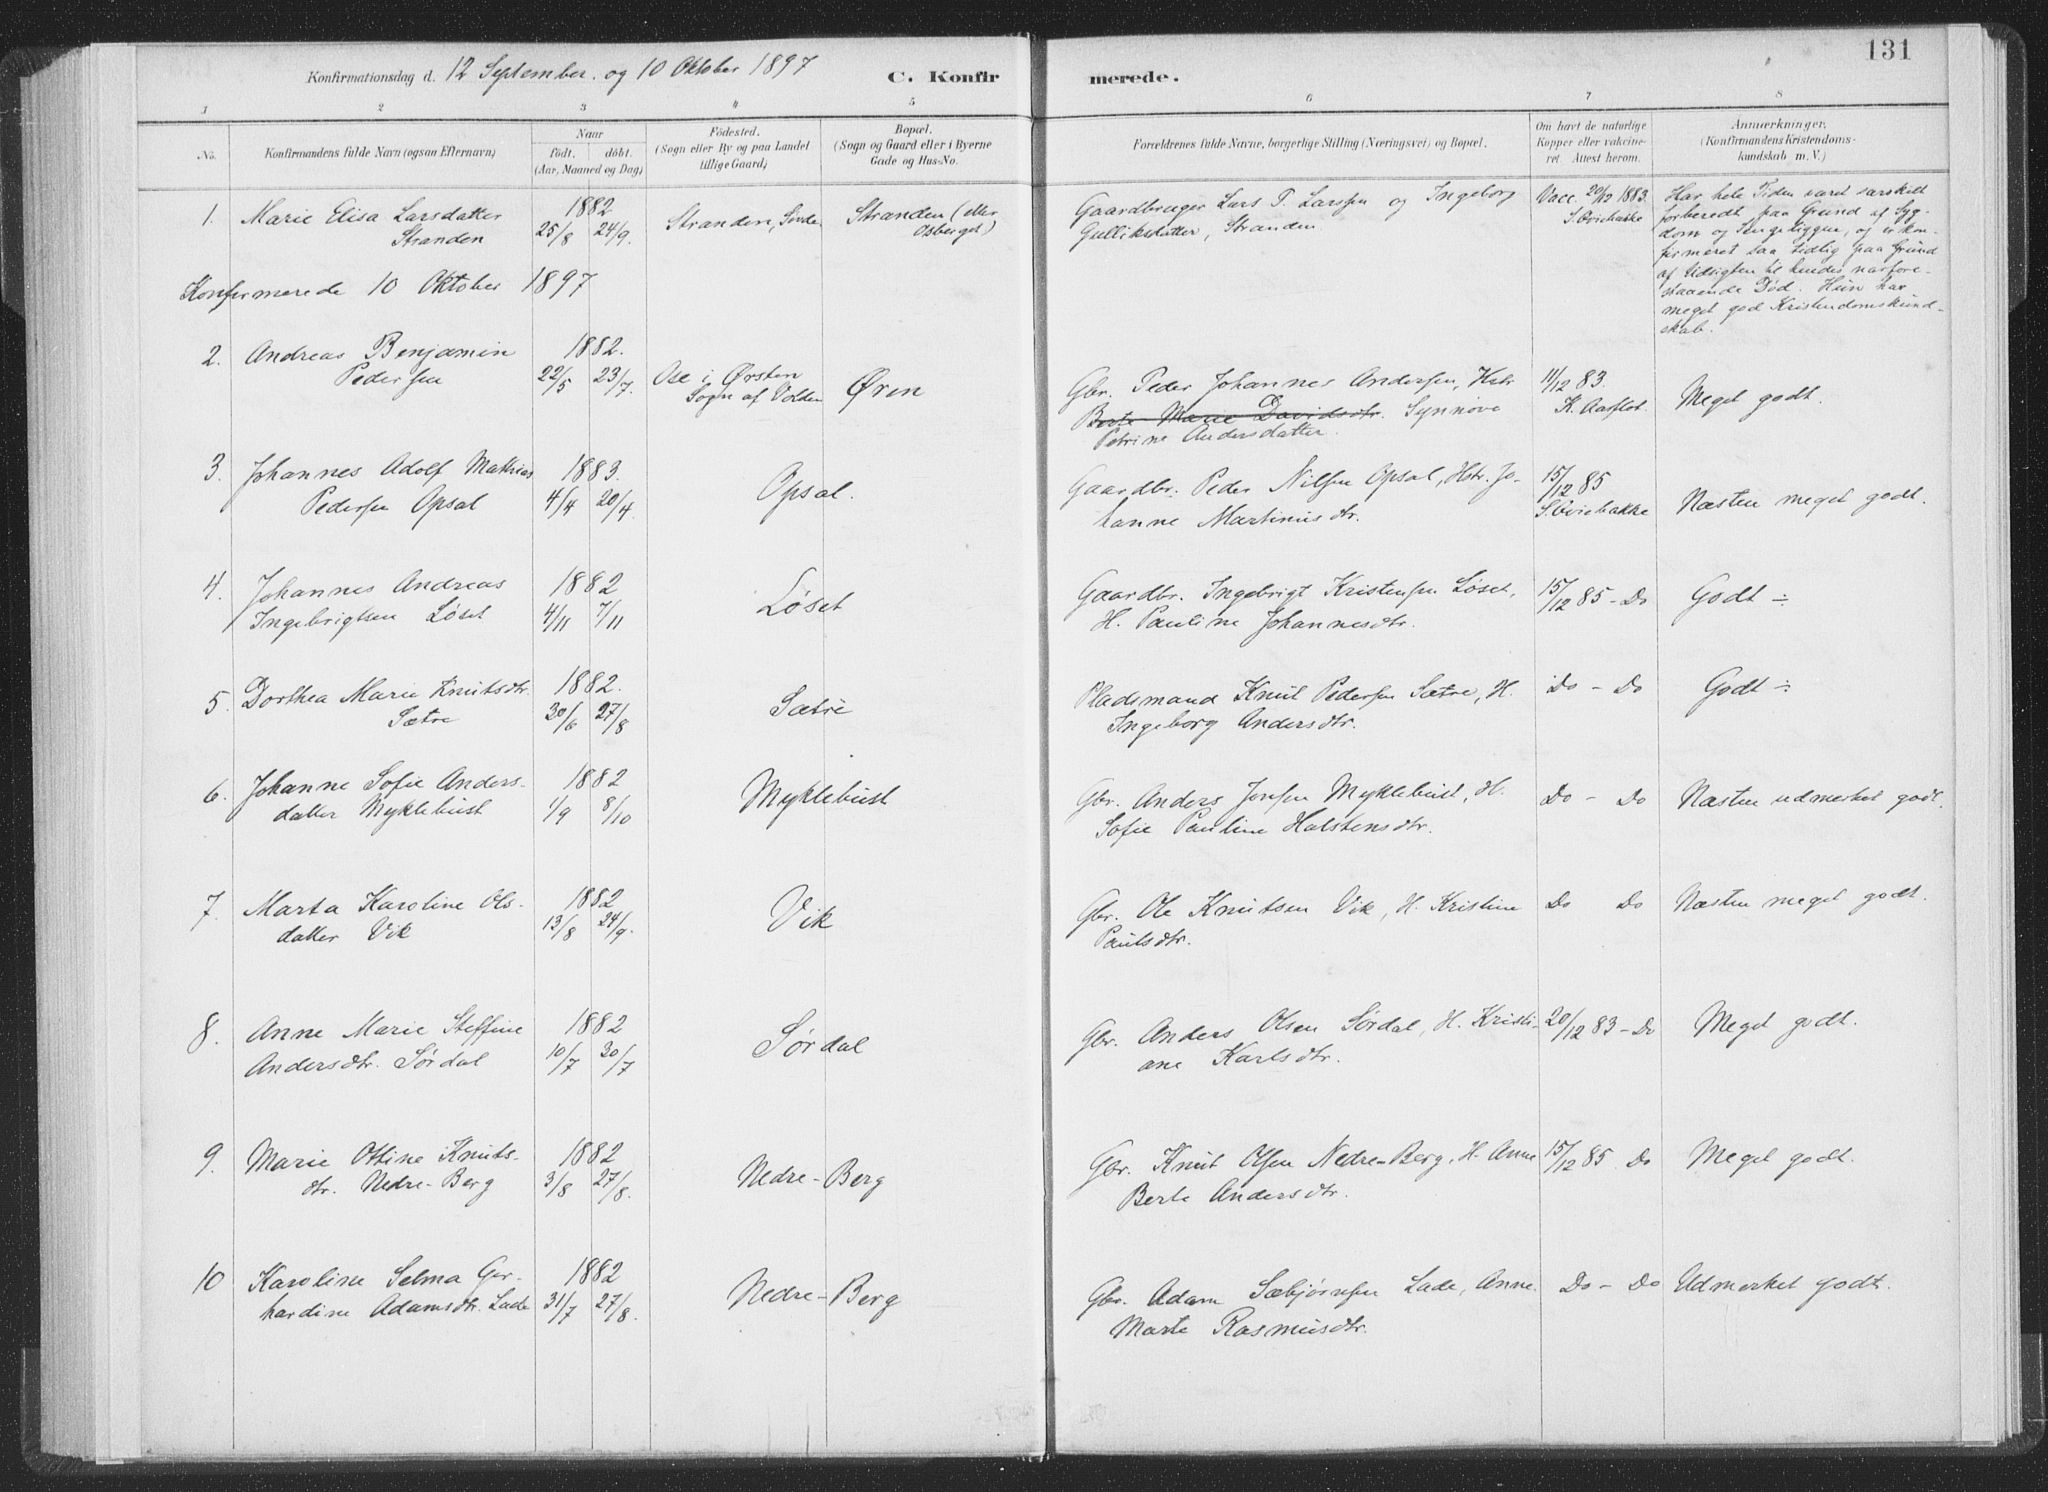 131
Konfirmationsdag d. 12 September. og 10 Oktober 1897
C. Konfirmerede.
1 2 3 4 5 6 7 8
No.
Konfirmandens fulde Navn (ogsaa Efternavn)
Naar
födt. döbt.
(Aar, Maaned og Dag)
Födested.
(Sogn eller By og paa Landet
tillige Gaard)
Bopæl.
(Sogn og Gaard eller i Byerne
Gade og Hus-No.
Forældrenes fulde Navne, borgerlige Stilling (Næringsvei) og Bopæl.
Om havt de naturlige
Kopper eller vakcine-
ret. Attest herom.
Anmærkninger.
(Konfirmandens Kristendoms-
kundskab m. V.)
1. Marie Elisa Larsdatter
Stranden
1882
25/8 24/9.
Stranden, Søvde
Stranden (eller
Osberget)
Gaardbruger Lars T. Larssen og Ingeborg
Gulliksdatter, Stranden
Vacc. 20/12 1883.
S. Øviebakke
Har hele Tiden været særskilt
forberedt paa Grund af Syg-
dom og Sengeliggen, og er kon-
firmeret saa tidlig paa Grund
af Udsigten til hendes nærfore-
staaende Död. Hun har
meget god Kristendomskund-
skab.
Konfirmerede 10 Oktober 1897
2. Andreas Benjamin
Pedersen
1882.
22/5 23/7.
Ose i Ørsten
Sogn af Volden
Øren
Gbr. Peder Johannes Andersen, Hstr
Berte Marie Davidsdtr. Synnöve
Petrine Andersdatter.
11/12 83.
K. Aaflot.
Meget godt.
3. Johannes Adolf Mathias
Pedersen Opsal
1883.
4/4 20/4
Opsal.
Gaardbr. Peder Nilsen Opsal, Hstr. Jo-
hanne Martinusdtr.
15/12 85
S. Øviebakke
Næsten meget godt.
4. Johannes Andreas
Ingebrigtsen Løset
1882
4/11 7/11
Løset
Gaardbr. Ingebrigt Kristensen Løset,
H. Pauline Johannesdtr.
15/12 85 - Do
Godt ÷
5. Dorthea Marie Knutsdtr.
Sætre
1882.
30/6 27/8
Sætre
Pladsmand Knut Pedersen Sætre, H.
Ingeborg Andersdtr.
Do - Do
Godt ÷
6. Johanne Sofie Anders-
datter Myklebust
1882
1/9 8/10
Myklebust
Gbr. Anders Jonsen Myklebust, H.
Sofie Pauline Halstensdtr.
Do - Do
Næsten udmerket godt.
7. Marta Karoline Ols-
datter Vik
1882
13/8 24/9.
Vik
Gbr. Ole Knutsen Vik, H. Kristine
Paulsdtr.
Do Do
Næsten meget godt.
8. Anne Marie Steffine
Andersdtr. Sørdal
1882
10/7 30/7
Sørdal
Gbr. Anders Olsen Sørdal, H. Kristi-
ane Karlsdtr.
20/12 83 - Do
Meget godt.
9. Marie Ottine Knuts-
dtr. Nedre-Berg
1882
3/8 27/8.
Nedre-Berg
Gbr. Knut Olsen Nedre-Berg, H. Anne
Berte Andersdtr.
15/12 85. Do
Meget godt.
10 Karoline Selma Ger-
hardine Adamsdtr. Lade
1882
31/7 27/8.
Nedre-Berg
Gbr. Adam Sæbjørnsen Lade, Anne
Marte Rasmusdtr.
Do - Do
Udmerket godt.